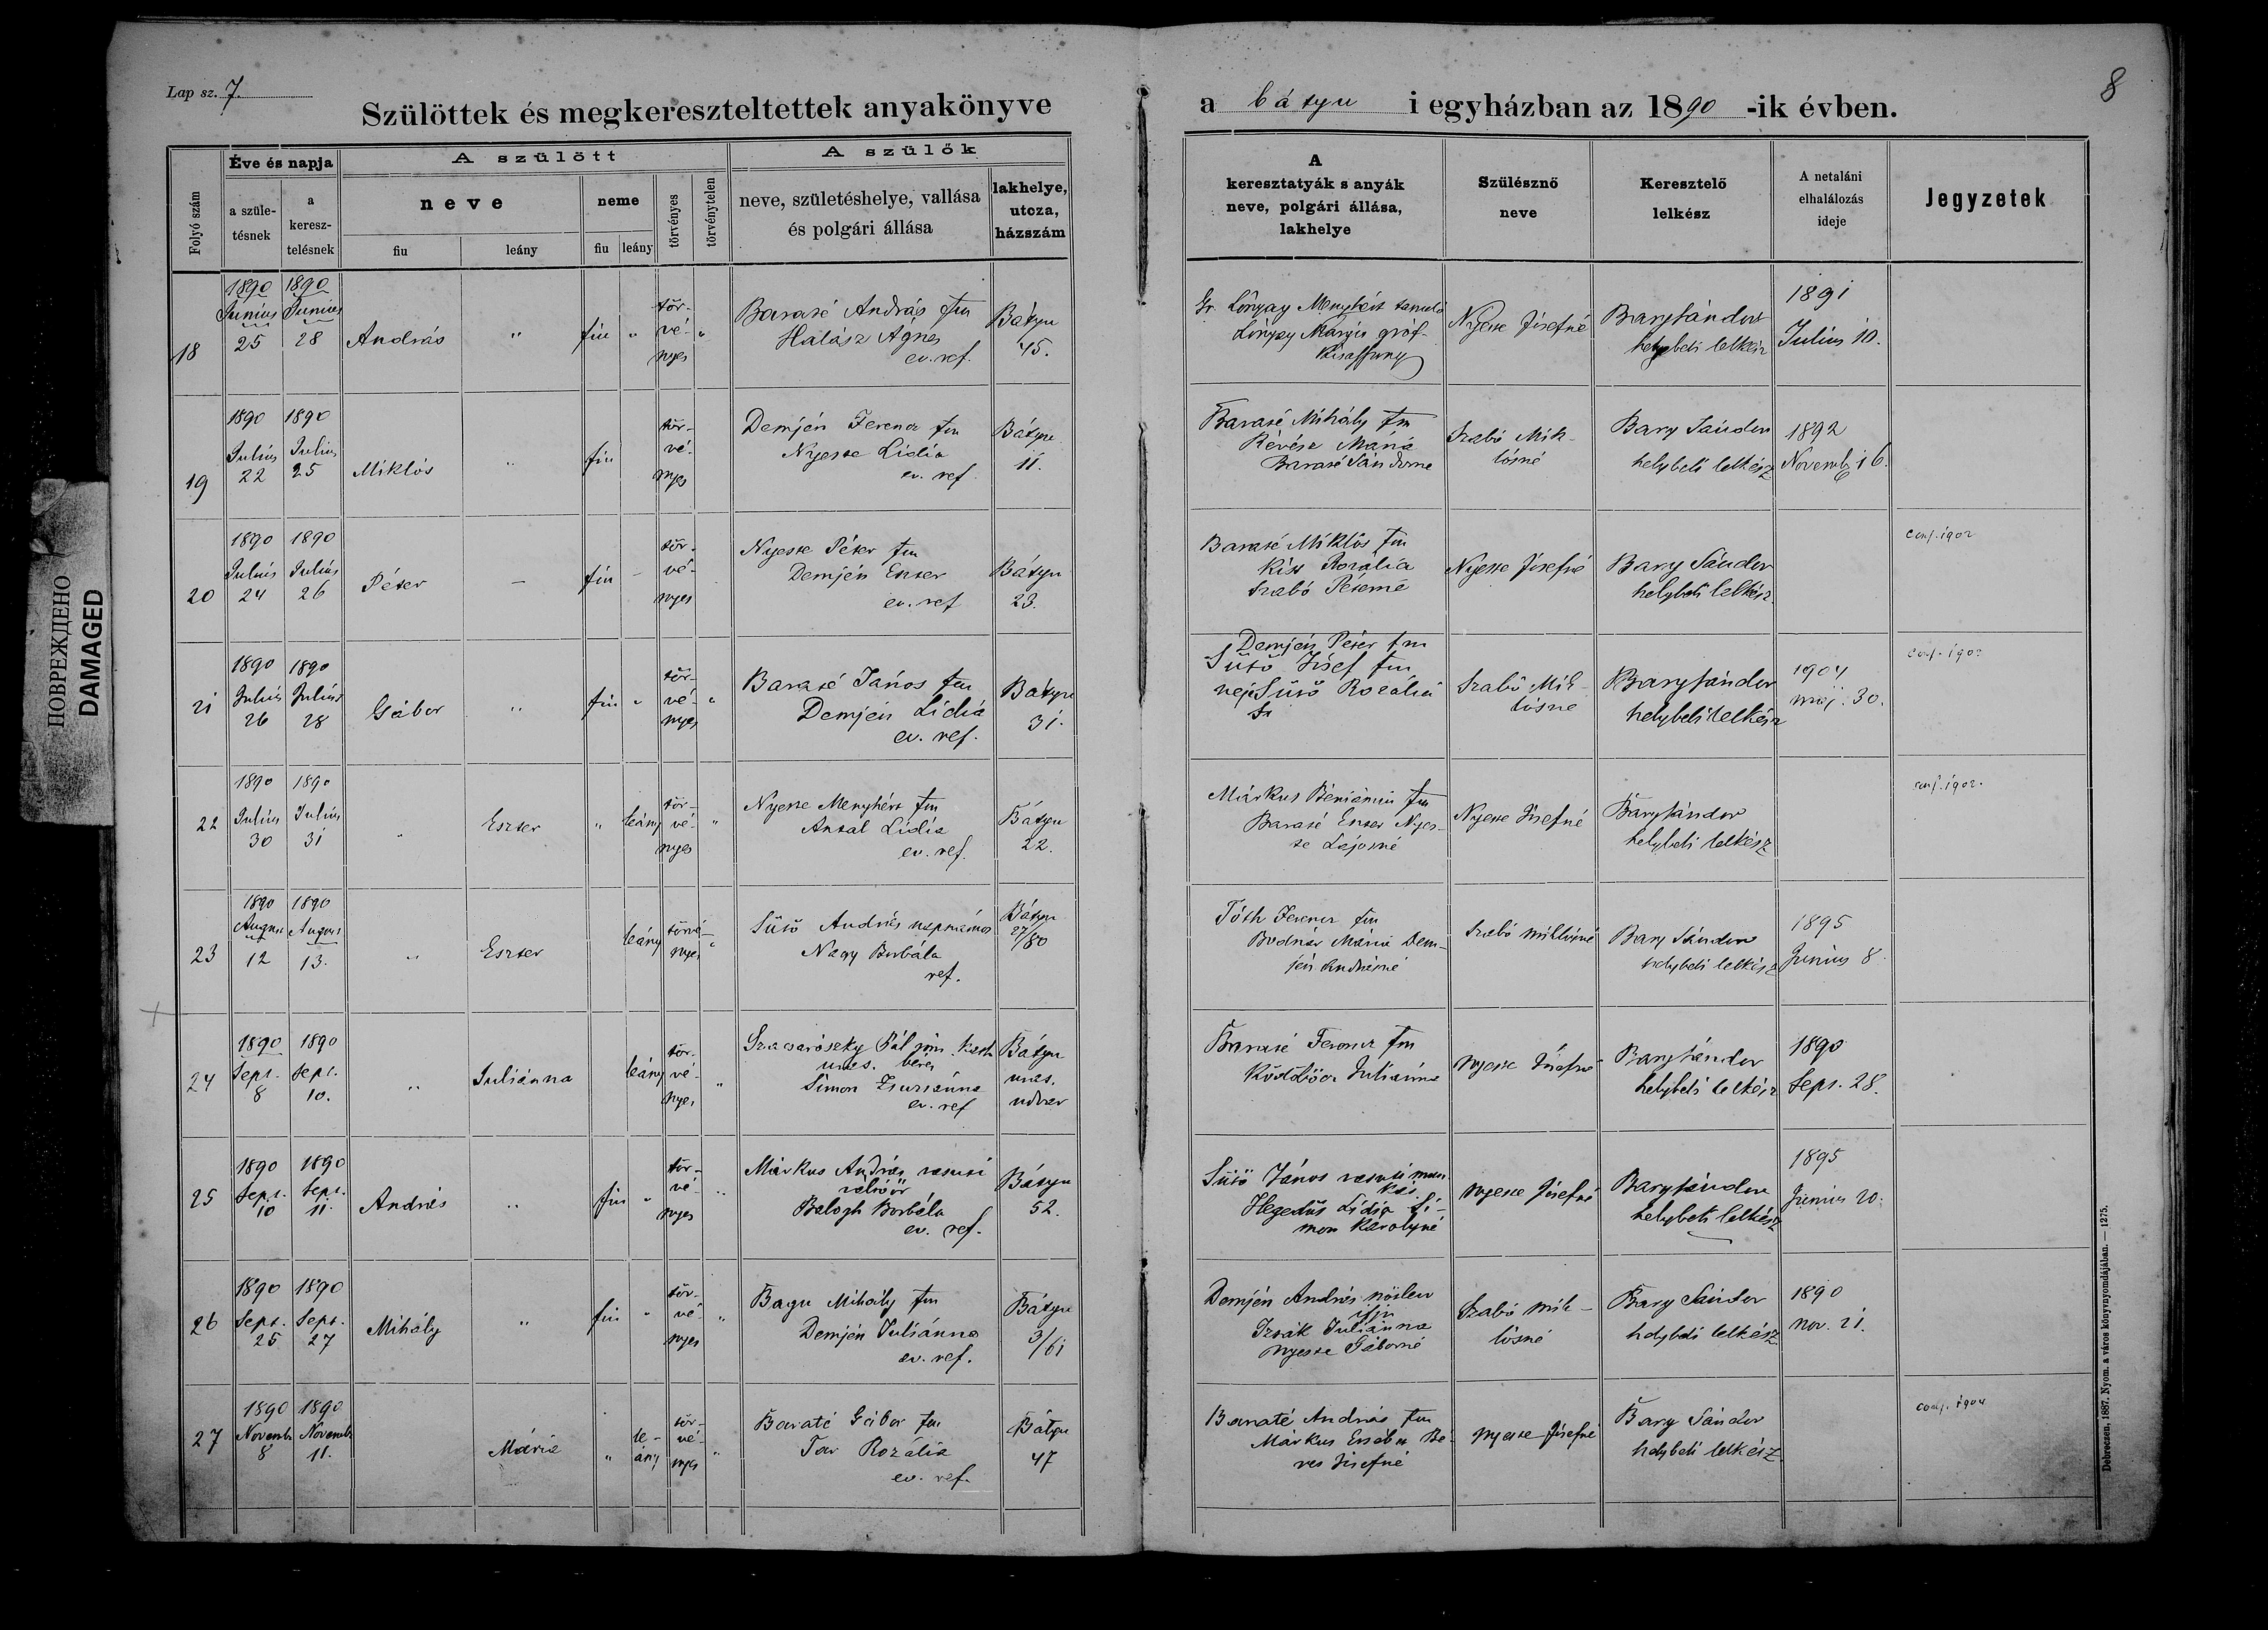 Lap sz. 7.
8
Szülöttek és megkereszteltettek anyakönyve
a bátyu i egyházban az 1890 -ik évben.
Folyó szám
Éve és napja
a születésnek
a keresztelésnek
A szülött
neve
fiu
leány
neme
fiu
leány
törvényes
törvénytelen
A szülők
neve, születéshelye, vallása
és polgári állása
lakhelye,
utcza,
házszám
A
keresztatyák s anyák
neve, polgári állása,
lakhelye
Szülésznő
neve
Keresztelő
lelkész
A netaláni
elhalálozás
ideje
Jegyzetek
18
1890 1890
Junius Junius
25 28
András
fiu
tör-
vé-
nyes
Baraté András fm
Halász Ágnes
ev. ref.
Bátyu
45.
Gr. Lónyay Menyhért
Lónyay Margit gróf
Nyeste Józsefné
Bary Sándor
helybeli lelkész
1891
Julius 10.
19
1890 1890
Julius Julius
22 25
Miklós
fiu
tör-
vé-
nyes
Demjén Ferencz fm
Nyeste Lidia
ev. ref
Bátyu
11.
Baraté Mihály fm
Révész Mária
Baraté Sándorné
Szabó Mik-
lósné
Bary Sándor
helybeli lelkész
1892
Novemb 16.
20
1890 1890
Julius Julius
24 26
Péter
fiu
tör-
vé-
nyes
Nyeste Péter fm
Demjén Eszter
ev. ref
Bátyu
23.
Baraté Miklós fm
Kiss Rozália
Szabó Péterné
Nyeste Józsefné
Bary Sándor
helybeli lelkész
conf. 1902
21
1890 1890
Julius Julius
26 28
Gábor
fiu
tör-
vé-
nyes
Baraté János fm
Demjén Lidia
ev. ref.
Bátyu
31.
Demjén Péter fm
Sütő József fm
neje Sütő Rozália
Szabó Mik-
lósné
Bary Sándor
helybeli lelkész
1904
máj. 30.
conf. 1902
22
1890 1890
Julius Julius
30 31
Eszter
leány
tör-
vé-
nyes
Nyeste Menyhért fm
Antal Lidia
ev. ref.
Bátyu
22.
Márkus Béniámin fm
Baraté Eszter Nyes-
te Lajosné
Nyeste Józsefné
Bary Sándor
helybeli lelkész
conf. 1902.
23
1890 1890
August August
12 13.
Eszter
leány
törvé-
nyes
Sütő András napszámos
Nagy Borbála
ref.
Bátyu
27/80
Tóth Ferencz fm
Bodnár Mária Dem-
jén Andrásné
Szabó Miklósné
Bary Sándor
helybeli lelkész
1895
Junius 8.
24
1890 1890
Sept. Sept.
8 10.
Juliánna
leány
tör-
vé-
nyes
Pál
Simon Zsuzsánna
ev. ref
Bátyu
uras.
udvar
Baraté Ferencz fm
Juliánna
Nyeste Józsefné
Bary Sándor
helybeli lelkész
1890
Sept. 28.
25
1890 1890
Sept. Sept.
10 11.
András
fiu
tör-
vé-
nyes
Márkus András vasuti
váltóőr
Balogh Borbála
ev. ref.
Bátyu
52.
Sütő János vasuti mun
kás
Hegedűs Lidia Si-
mon Károlyné
Nyeste Józsefné
Bary Sándor
helybeli lelkész
1895
Junius 20.
26
1890 1890
Sept. Sept.
25 27
Mihály
fiu
tör-
vé-
nyes
Bagu Mihály fm
Demjén Juliánna
ev. ref.
Bátyu
3/61
Demjén András nőtlen
ifju
Izsák Juliánna
Nyeste Gáborné
Szabó Mik-
lósné
Bary Sándor
helybeli lelkész
1890
nov. 21.
27
1890 1890
Novemb Novemb
8 11.
Mária
le-
ány
tör-
vé-
nyes
Baraté Gábor fm
Tar Rozália
ev. ref.
Bátyu
47
Baraté András fm
Márkus Erzsébet Bé-
res Józsefné
Nyeste Józsefné
Bary Sándor
helybeli lelkész
conf. 1904
ПОВРЕЖДЕНО
DAMAGED
Debreczen, 1887. Nyom. a város könyvnyomdájában. — 1275.